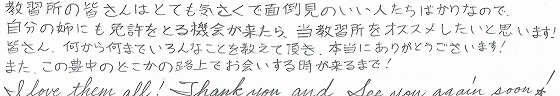 教習所の皆さんはとても気さくで面倒見のいい人たちばかりなので、
自分の姉にも免許をとる機会が来たら、当教習所をオススメしたいと思います!
皆さん、何から何までいろんなことを教えて頂き、本当にありがとうございます!
また、この豊中のどこかの路上でお会いする時が来るまで!
I love them all! Thank you and See you again soon!